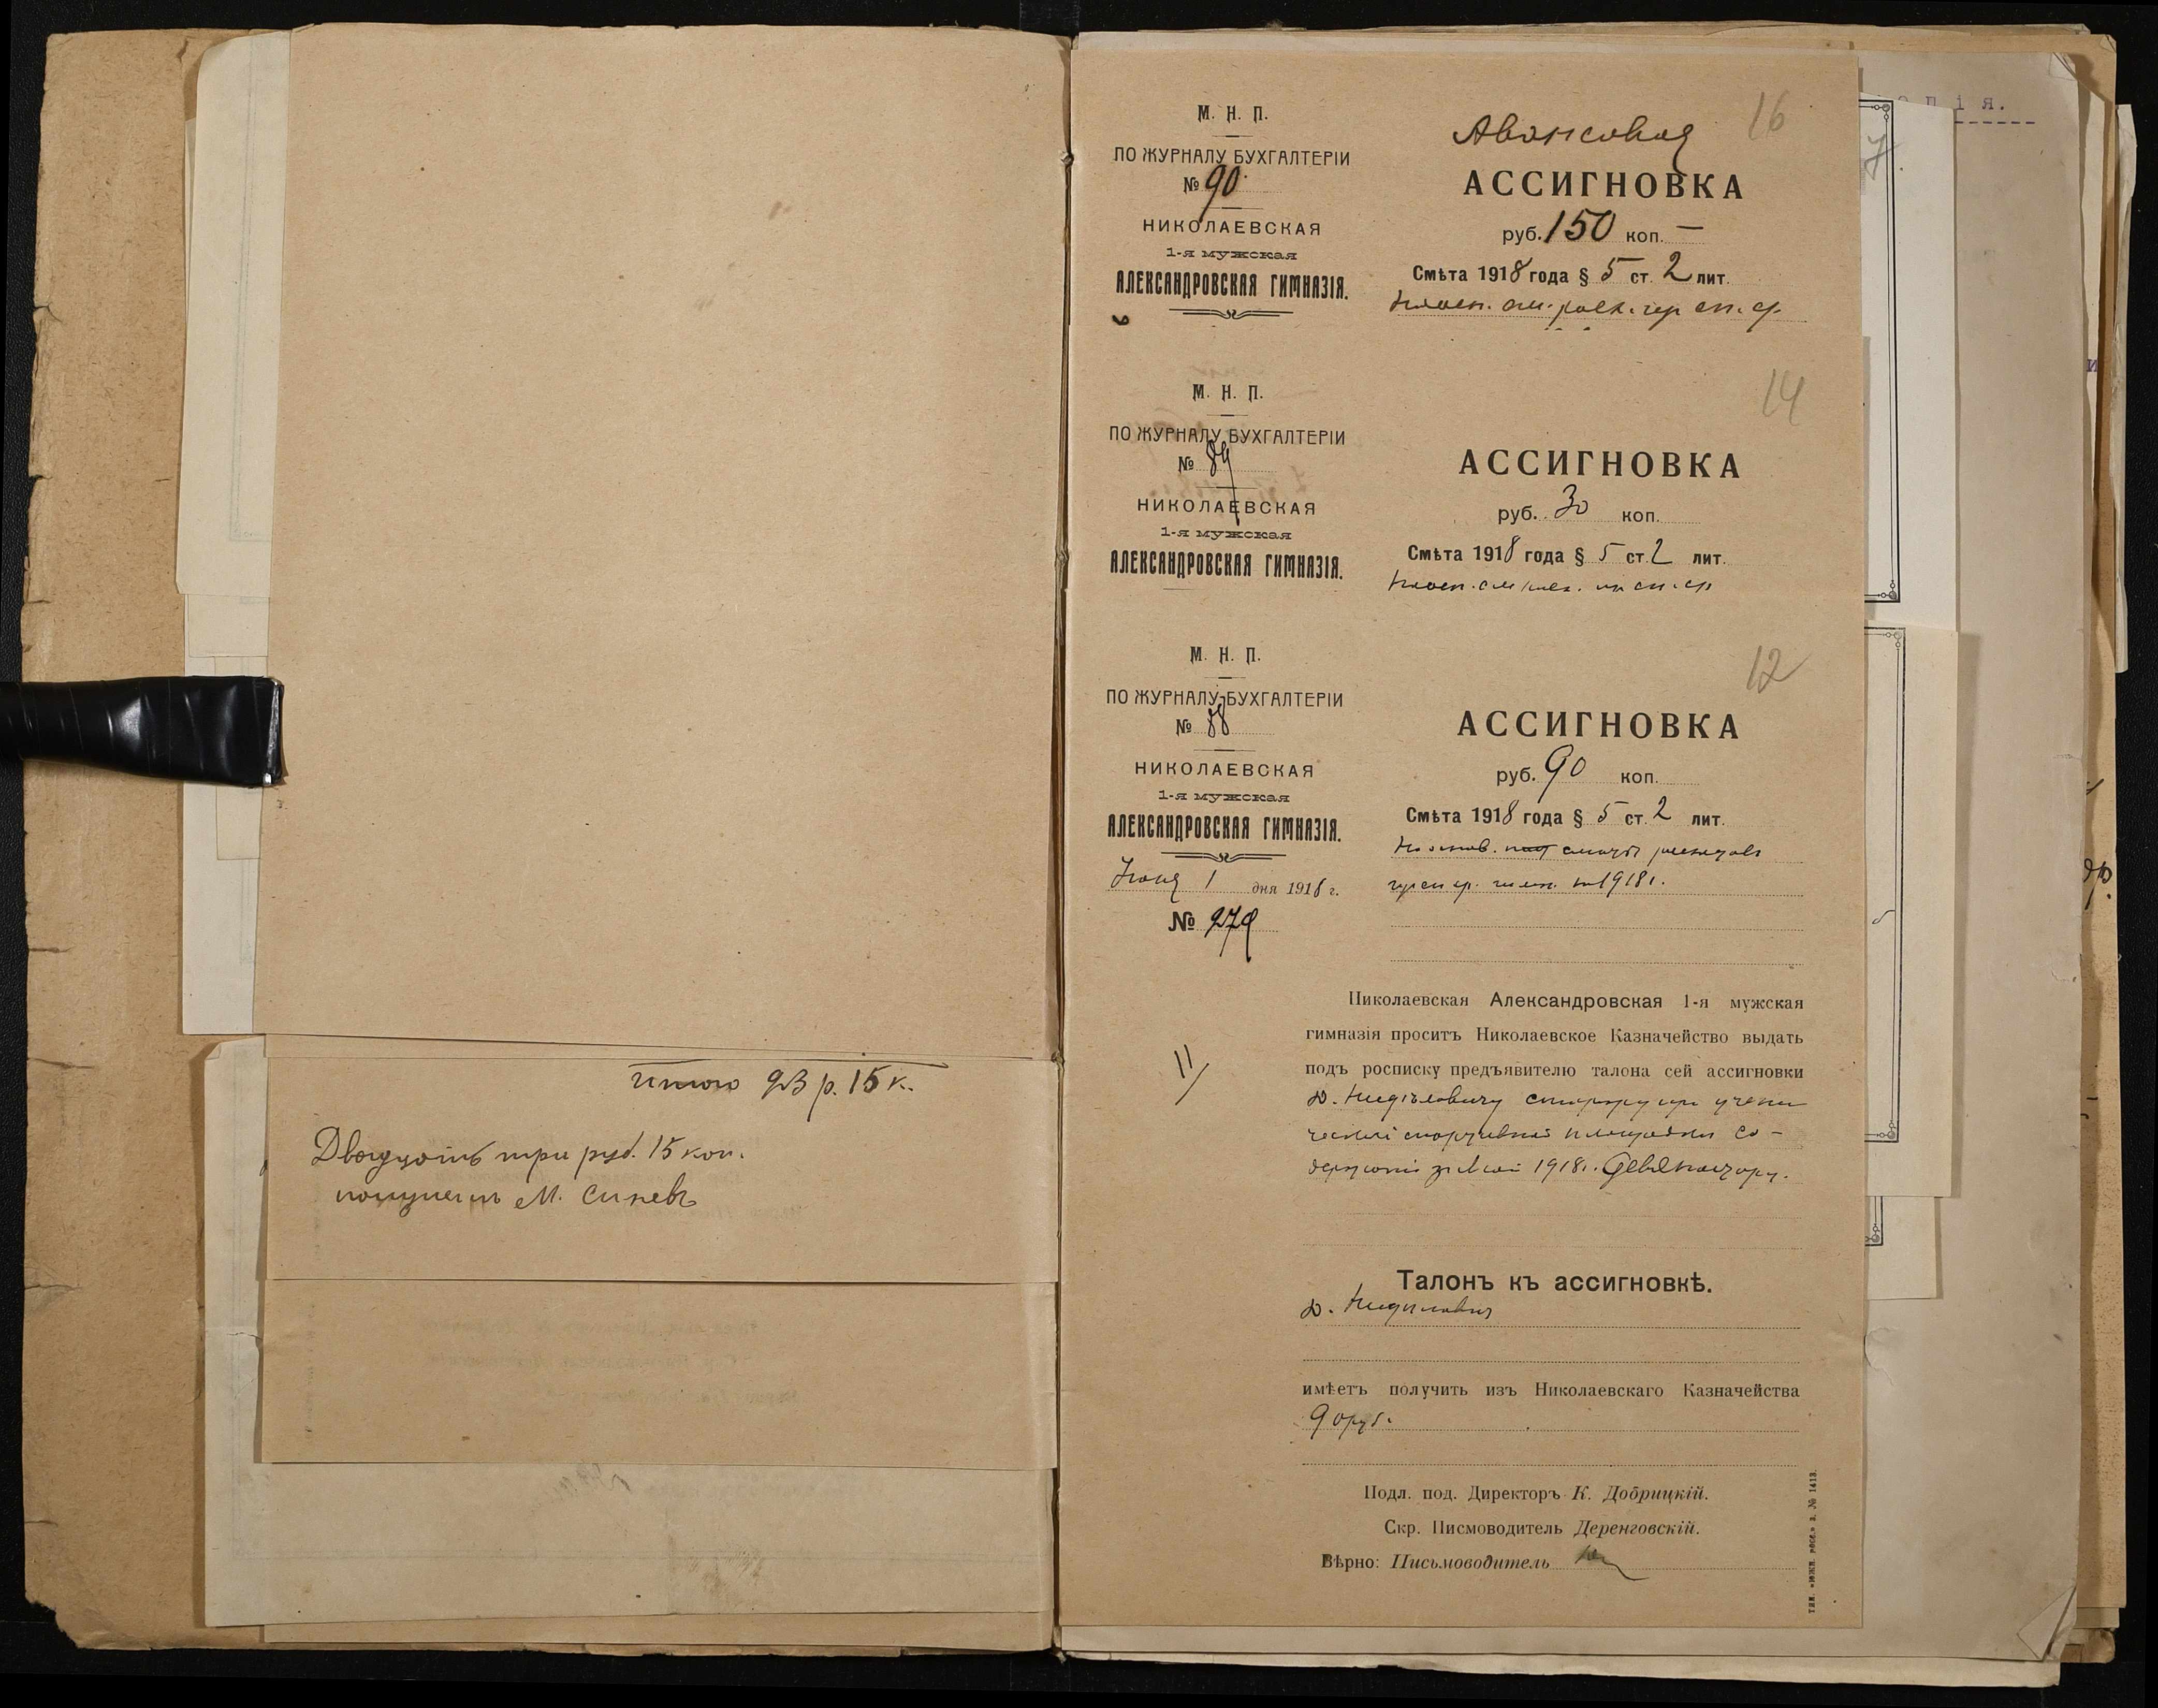 итого 23 р. 15 к.
Двадцать три руб. 15 коп.
получилъ М. Синевъ
16
М. Н. П.
ПО ЖУРНАЛУ БУХГАЛТЕРІИ
№ 90
НИКОЛАЕВСКАЯ
1-я мужская
АЛЕКСАНДРОВСКАЯ ГИМНАЗІЯ.
Авансовая
АССИГНОВКА
руб. 150 коп. —
Смѣта 1918 года § 5 ст. 2 лит.
14
М. Н. П.
ПО ЖУРНАЛУ БУХГАЛТЕРІИ
№ 89
НИКОЛАЕВСКАЯ
1-я мужская
АЛЕКСАНДРОВСКАЯ ГИМНАЗІЯ.
АССИГНОВКА
руб. 30 коп.
Смѣта 1918 года § 5 ст. 2 лит.
12
М. Н. П.
ПО ЖУРНАЛУ БУХГАЛТЕРІИ
№ 88
НИКОЛАЕВСКАЯ
1-я мужская
АЛЕКСАНДРОВСКАЯ ГИМНАЗІЯ.
Іюня 1 дня 1918 г.
№ 279
АССИГНОВКА
руб. 90 коп.
Смѣта 1918 года § 5 ст. 2 лит.
На основ. смѣты расходовъ
на 1918 г.
Николаевская Александровская 1-я мужская
гимназія проситъ Николаевское Казначейство выдать
11
подъ росписку предъявителю талона сей ассигновки
учени
ческой спортивной площадки со-
держанія за Май 1918 г. Девяносто ру.
Талонъ къ ассигновкѣ.
имѣетъ получить изъ Николаевскаго Казначейства
90 руб.
Подл. под. Директоръ К. Добрицкій.
Скр. Писмоводитель Деренговскій.
Вѣрно: Письмоводитель
тип. «южн. росс.» з. № 1413.